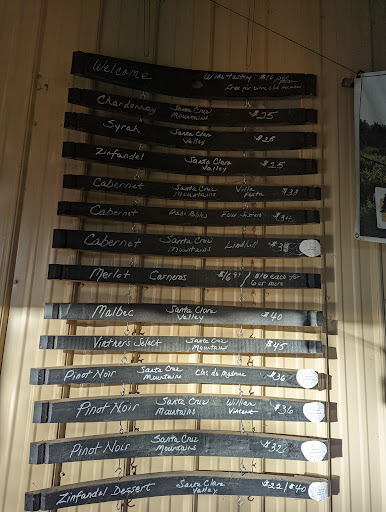 Welcome Wine tasting $10 per person
Free for wine club members
Chardonnay Santa Cruz Mountains $25
Syrah Santa Clara Valley $25
Zinfandel Santa Clara Valley $25
Cabernet Santa Cruz Mountains Villa Festa $33
Cabernet Paso Robles Four Sisters
Cabernet Santa Cruz Mountains
Merlot Carneros / $10 each for 6 or more
Malbec Santa Clara Valley $40
Vintners Select Santa Cruz Mountains $45
Pinot Noir Santa Cruz Mountains $36
Pinot Noir Santa Cruz Mountains Vincent $36
Pinot Noir Santa Cruz Mountains $32
Zinfandel Dessert Santa Clara Valley $22/$40